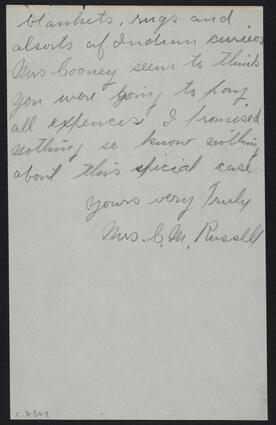 blankets, rugs and
alsorts of Indian curios
Mrs Cooney seem to think
you were going to pay
all expences I promised
nothing so know nothing
about this spicial case
yours very Truly
Mrs. C. M. Russell